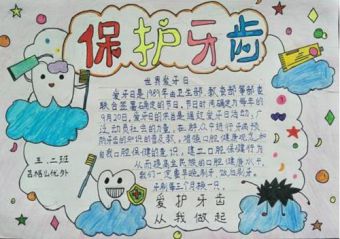 保护牙齿
世界爱牙日
爱牙日是1989年由卫生部、教委部等部委
联合签署确定的节日,节日时间确定为每年的
9月20日,爱牙日的来自是通过爱牙日活动,广
泛动员社会的力量,在群众中进行牙病预
防牙齿的知识的普及教,增强口腔健康观念和
自我口腔保健的意识,建立口腔保健行为
从而提高全民族的口腔健康水平。
我们一定要早晚刷牙 饭后漱口。
牙刷每三个月换一只
爱护牙齿
从我做起
五、二班